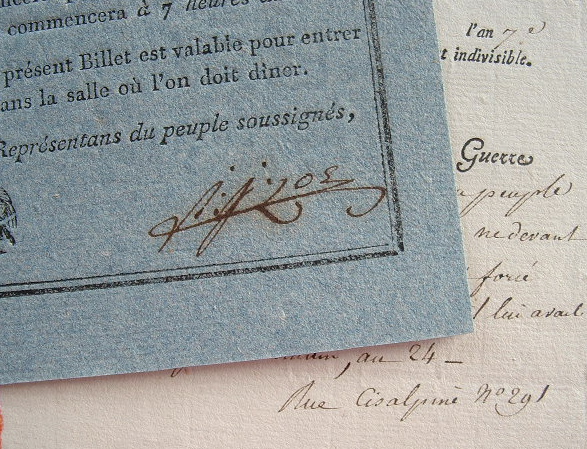 commencera à 7 heures
présent Billet est valable pour entrer
ans la salle où l'on doit dîner.
Représentans du peuple soussignés,
l'an 7e
t indivisible.
Guerre
peuple
ne devant
forcé
lui avait
, au 24 –
Rue Cisalpine N° 291